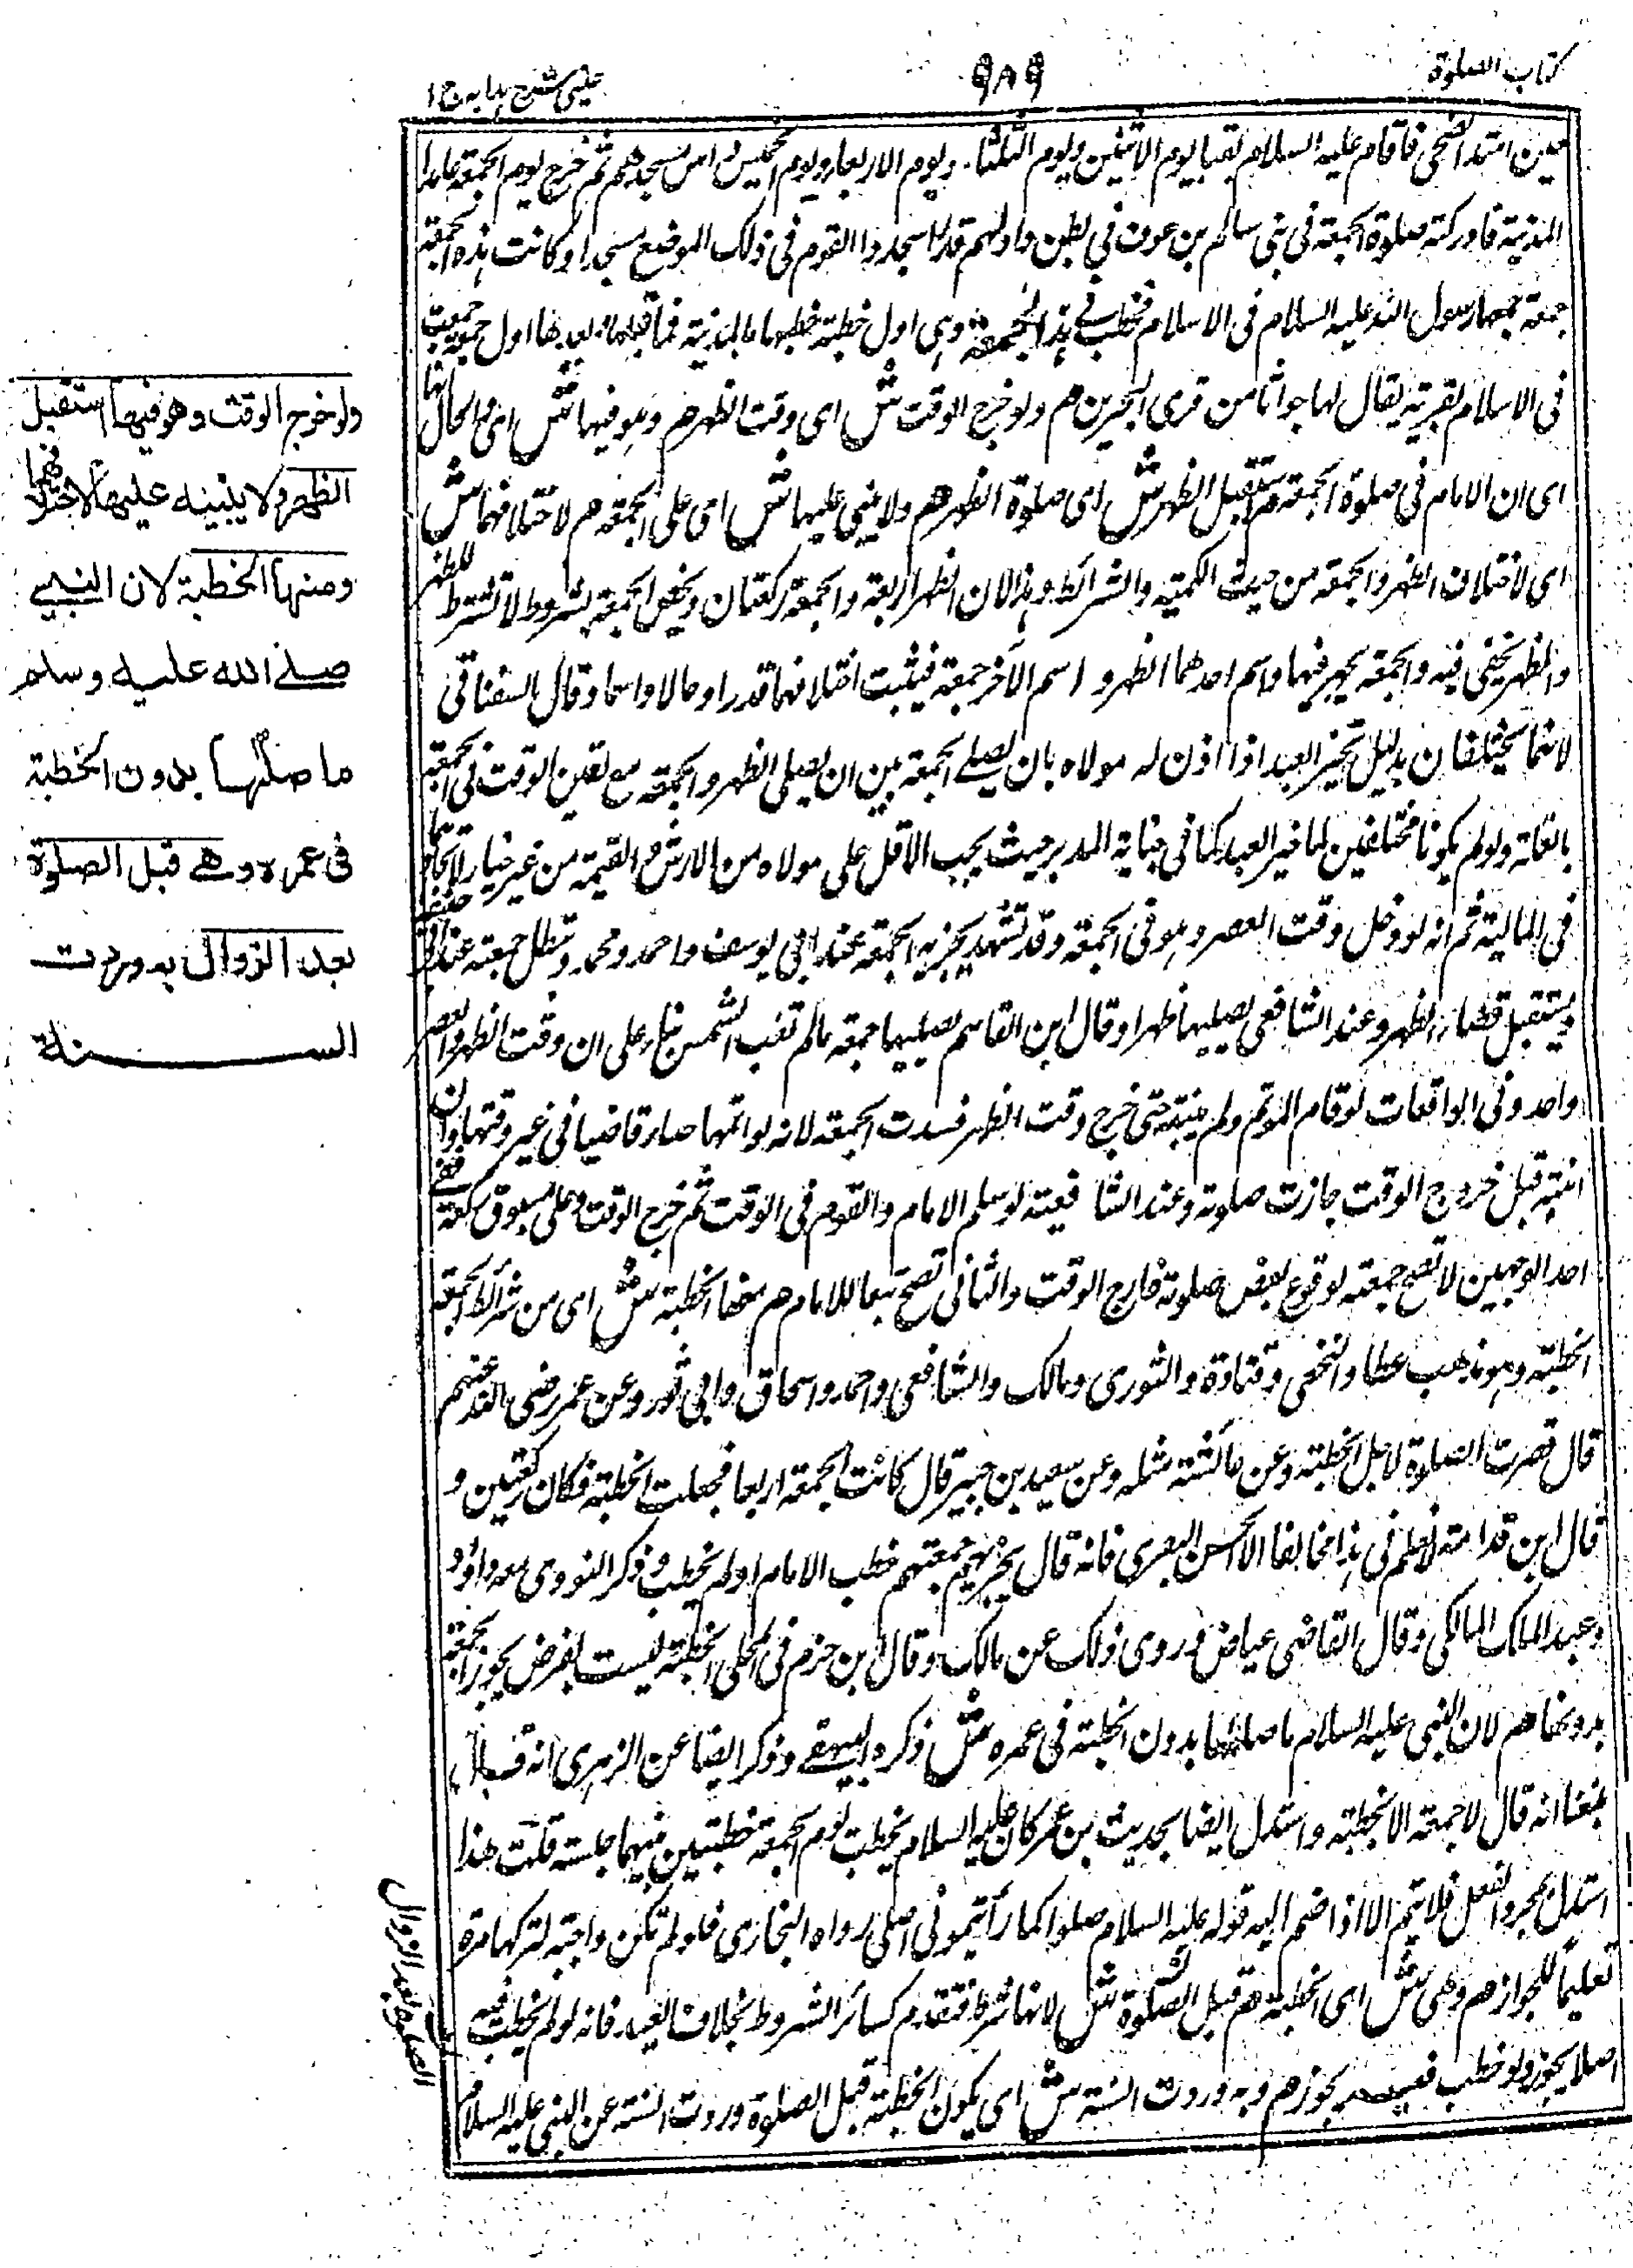 كتاب الصلوة
٩٨٩
عينى شرح هدايه ج ١
حين امتد الضحى فاقام عليه السلام بقبا يوم الاثنين ويوم الثلثا. ويوم الاربعا ويوم الخميس واسس مسجدهم ثم خرج يوم الجمعة عامدا
المدينة فادركته صلوة الجمعة فى بنى سالم بن عوف فى بطن واد لهم قد اتخذوا القوم فى ذلك الموضع مسجدا وكانت هذه الجمعة
جمعة جمعها رسول الله عليه السلام فى الاسلام فخطب فى هذه الجمعة وهى اول خطبة خطبها بالمدينة فما قبلها وبعدها اول جمعة جمعت
فى الاسلام بقرية يقال لها جواثا من قرى البحرين هم ولو خرج الوقت ش اى وقت الظهر هم وهو فيها ش اى والحال انه
اى ان الامام فى صلوة الجمعة هم استقبل الظهر ش اى صلوة الظهر هم ولا يبنى عليها ش اى على الجمعة هم لاختلافهما ش
اى لاختلاف الظهر والجمعة من حيث الكمية والشرائط وهذا لان الظهر اربعة والجمعة ركعتان ويخص الجمعة بشروط لا تشترط للظهر
والظهر يخفى فيه والجمعة يجهر فيها واسم احدهما الظهر و اسم الآخر جمعة فيثبت اختلافهما قدرا وحالا واسما وقال السغناقى
لانهما مختلفان بدليل تخير العبد اذا اذن له مولاه بان يصلى الجمعة بين ان يصلى الظهر والجمعة مع تعين الوقت فى الجمعة
ولو لم يكونا مختلفين لما خير العبد كما فى جناية المدبر حيث يجب الاقل على مولاه من الارش والقيمة من غير خيار لاتحادهما
فى المالية ثم انه لو دخل وقت العصر وهو فى الجمعة وقد تشهد يجزيه الجمعة عند ابى يوسف واحمد ومحمد وتبطل جمعته عند ابى حنيفة
ويستقبل قضاء الظهر وعند الشافعى يصليها ظهرا وقال ابن القاسم يصليها جمعة مالم تغب الشمس بناء على ان وقت الظهر والعصر
واحد وفى الواقعات لو قام المؤتم ولم ينتبه حتى خرج وقت الظهر فسدت الجمعة لانه لو اتمها صار قاضيا فى غير وقتها وان
انتبه قبل خروج الوقت جازت صلوته وعند الشافعية لو سلم الامام والقوم فى الوقت ثم خرج الوقت وعلى مسبوق ركعة ففى
احد الوجهين لا تصح جمعته لوقوع بعض صلوته خارج الوقت والثانى تصح تبعا للامام هم ومنها الخطبة ش اى من شرائط الجمعة
الخطبة وهو مذهب عطا والنخعى وقتادة والثورى ومالك والشافعى واحمد واسحاق وابى ثور وعن عمر رضى الله عنهم
قال قصرت الصلوة لاجل الخطبة وعن عائشة مثله وعن سعيد بن جبير قال كانت الجمعة اربعا فجعلت الخطبة فكان ركعتين و
قال ابن قدامة لا نعلم فى هذا مخالفا الا الحسن البصرى فانه قال يجزيهم جمعتهم خطب الامام او لم يخطب وذكر النووى معه داؤد
وعبد الملك المالكى وقال القاضى عياض وروى ذلك عن مالك وقال ابن حزم فى المحلى الخطبة ليست بفرض يجوز الجمعة
بدونها هم لان النبى عليه السلام ما صلاها بدون الخطبة فى عمره ش ذكره البيهقى وذكر ايضا عن الزهرى انه قال
بلغنا انه قال لا جمعة الا بخطبة واستدل ايضا بحديث بن عمر كان عليه السلام يخطب يوم الجمعة خطبتين بينهما جلسة قلت هذا
استدل بمجرد الفعل فلا يتم الا اذا ضم اليه قوله عليه السلام صلوا كما رأيتمونى اصلى رواه البخارى فلو لم تكن واجبة لتركها مرة
تعليما للجواز هم وهى ش اى الخطبة هم قبل الصلوة ش لانها شرط فتقدم كسائر الشروط بخلاف العيد فانه لو لم يخطب فيه
اصلا يجوز ولو خطب فيه يجوز هم وبه وردت السنة ش اى يكون الخطبة قبل الصلوة وردت السنة عن النبى عليه السلام
ولو خرج الوقت وهو فيها استقبل
الظهر ولا يبنيه عليها لاختلافهما
ومنها الخطبة لان النبى
صلى الله عليه وسلم
ما صلها بدون الخطبة
فى عمره وهى قبل الصلوة
بعد الزوال به وردت
السنة
الصلوة بعد الزوال